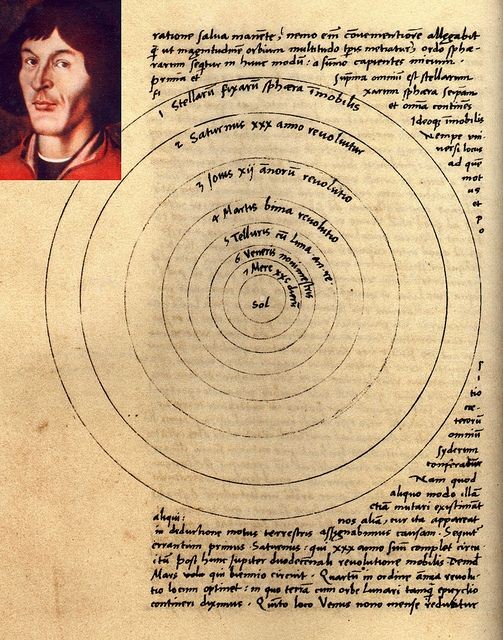 ratione salva manēte, nemo em̄ convenientiorē allegabit
q̄ ut magnitudinē orbium multitudo tp̄is metiatur, ordo sphæ-
rarum seqtur in hunc modū: a sūmo capientes initium.
prima et suprema omniū est stellarum
fi xarum sphæra seipsam
et omnia continēs
Ideoq; īmobilis
Nempe uni-
versi locus
ad quē
mot
us
et
p
o
1 Stellarū fixarū sphæra īmobilis
2 Saturnus xxx anno revolvitur
3 Jovis xij annorū revolutio
4 Martis bima revolutio
5 Telluris cū Luna an. re.
6 Veneris nonimestris
7 Merc xxc dierū
Sol
S
i
tio
cæ-
terorū
omniū
syderum
conferatur
Nam quod
aliquo modo illā
etiā mutari existimāt
aliqui: nos aliā, cur ita appareat
in deductione motus terrestris assignabimus causam. Sequit
errantium primus Saturnus: qui xxx anno suū complet circu
itū post hunc Jupiter duodecennali revolutione mobilis. Deind
Mars volo qui biennio circuit. Quartū in ordine annua revolu-
tio locum optinet: in quo terrā cum orbe Lunari tamq epicyclio
contineri diximus. Quīto loco Venus nono mense reducitur